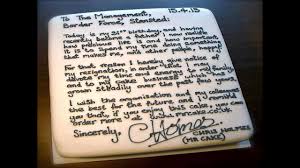 To The Management, 15.4.13
Border Force, Stansted:
Today is my 31st birthday, and having
recently become a father I now realise
how precious life is and how important
it is to spend my time doing something
that makes me, and other people, happy.
For that reason I hereby give notice of
my resignation, in order that I may
devote my time and energy to my family
and to my cakes business which has
grown steadily over the past few years.
I wish the organisation and my colleagues
the best for the future, and I remind
you that, if you enjoy this cake, you can
order more at www.mrcake.co.uk
Sincerely,
CHRIS HOLMES
(MR CAKE)